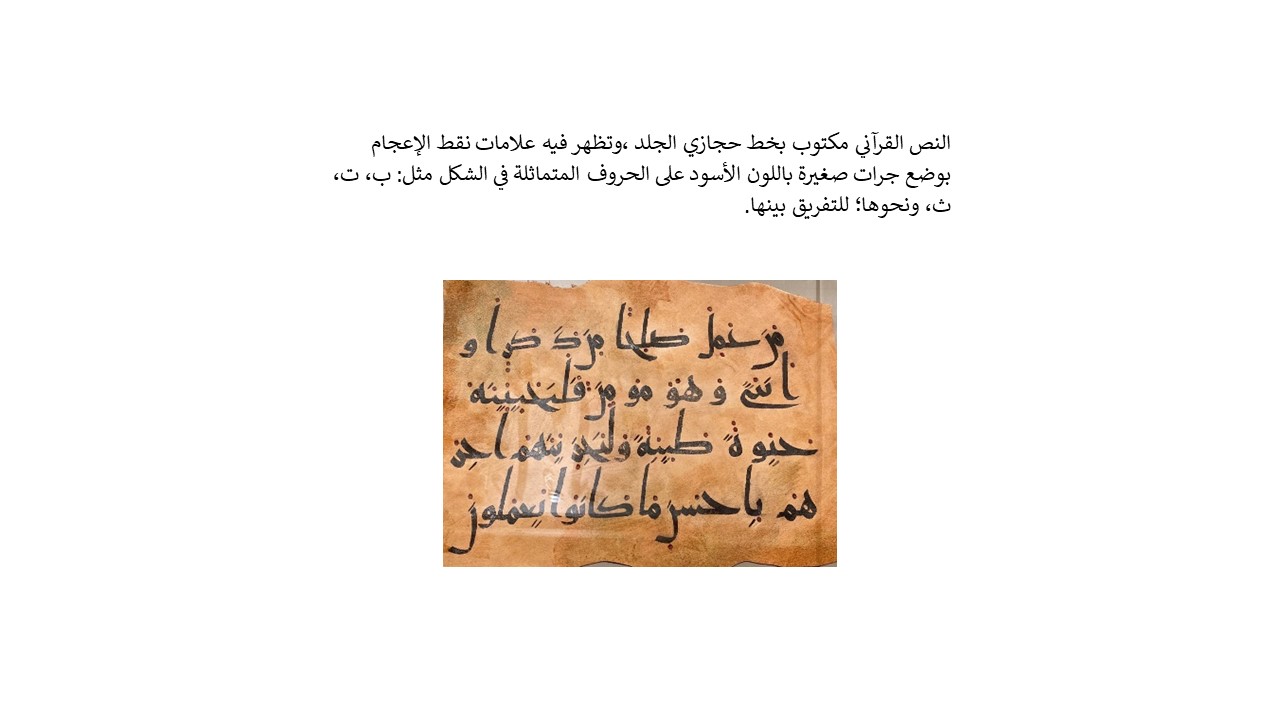 النص القرآني مكتوب بخط حجازي الجلد ،وتظهر فيه علامات نقط الإعجام
بوضع جرات صغيرة باللون الأسود على الحروف المتماثلة في الشكل مثل: ب، ت،
ث، ونحوها؛ للتفريق بينها.
من عمل صلحا من ذكر ا و
ا نثى و هو مو من فلنحيينه
حيو ة طيبة و لنجز ينهم ا جر
هم با حسن ما كانوا يعملون